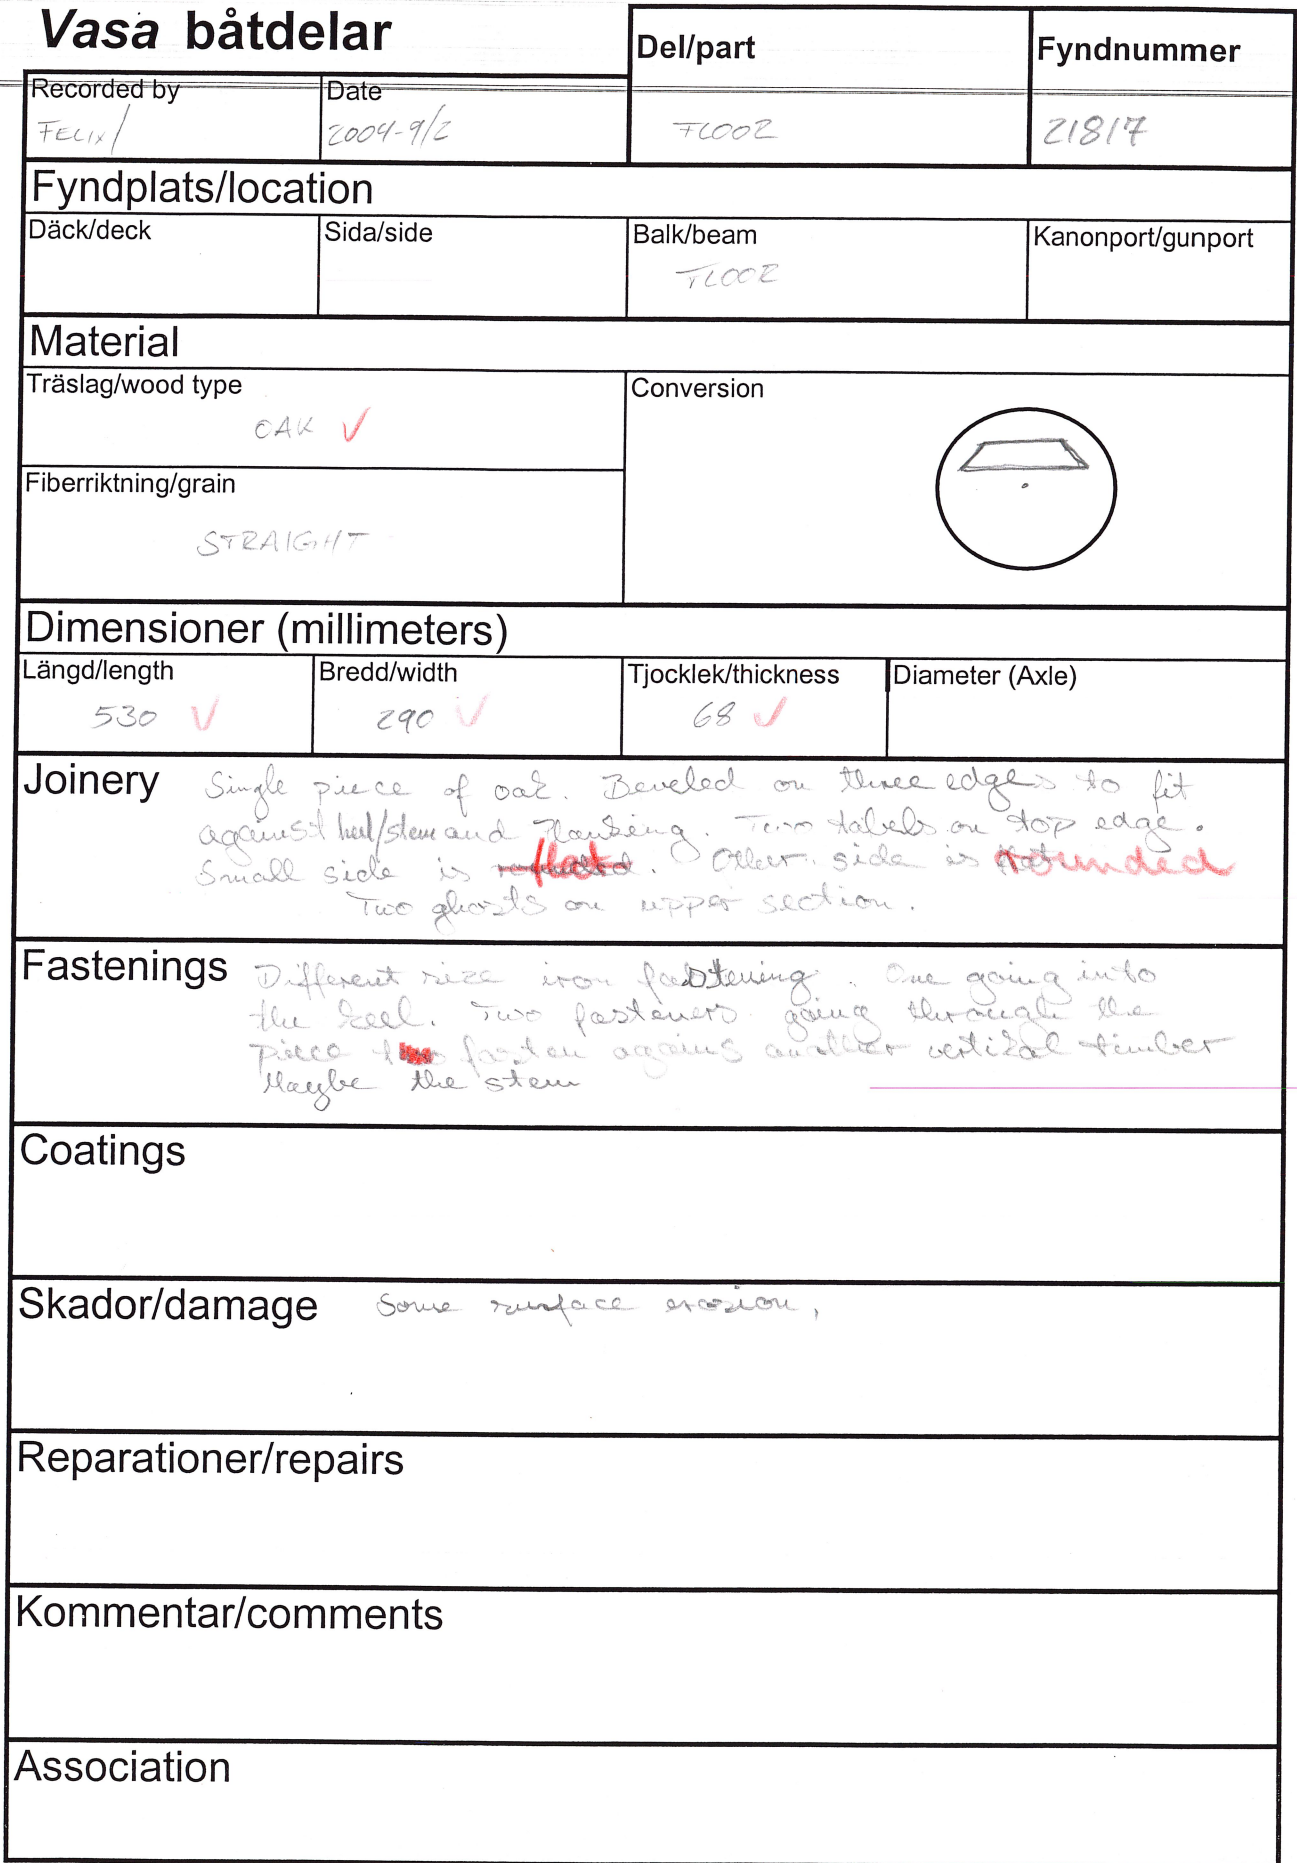 Vasa båtdelar
Del/part
Fyndnummer
Recorded by
Date
FELIX/
2004-9/2
FLOOR
21817
Fyndplats/location
Däck/deck
Sida/side
Balk/beam
Kanonport/gunport
FLOOR
Material
Träslag/wood type
Conversion
OAK ✓
Fiberriktning/grain
STRAIGHT
Dimensioner (millimeters)
Längd/length
Bredd/width
Tjocklek/thickness
Diameter (Axle)
530 ✓
290 ✓
68 ✓
Joinery Single piece of oak. Beveled on three edges to fit
against keel/stem and Planking. Two tabels on top edge.
Small side is flat. Other side is rounded
Two ghosts on upper section.
Fastenings Different size iron fastening. One going into
the keel. Two fasteners going through the
piece fasten agains another vertikal timber
Maybe the stem
Coatings
Skador/damage Some surface erosion,
Reparationer/repairs
Kommentar/comments
Association